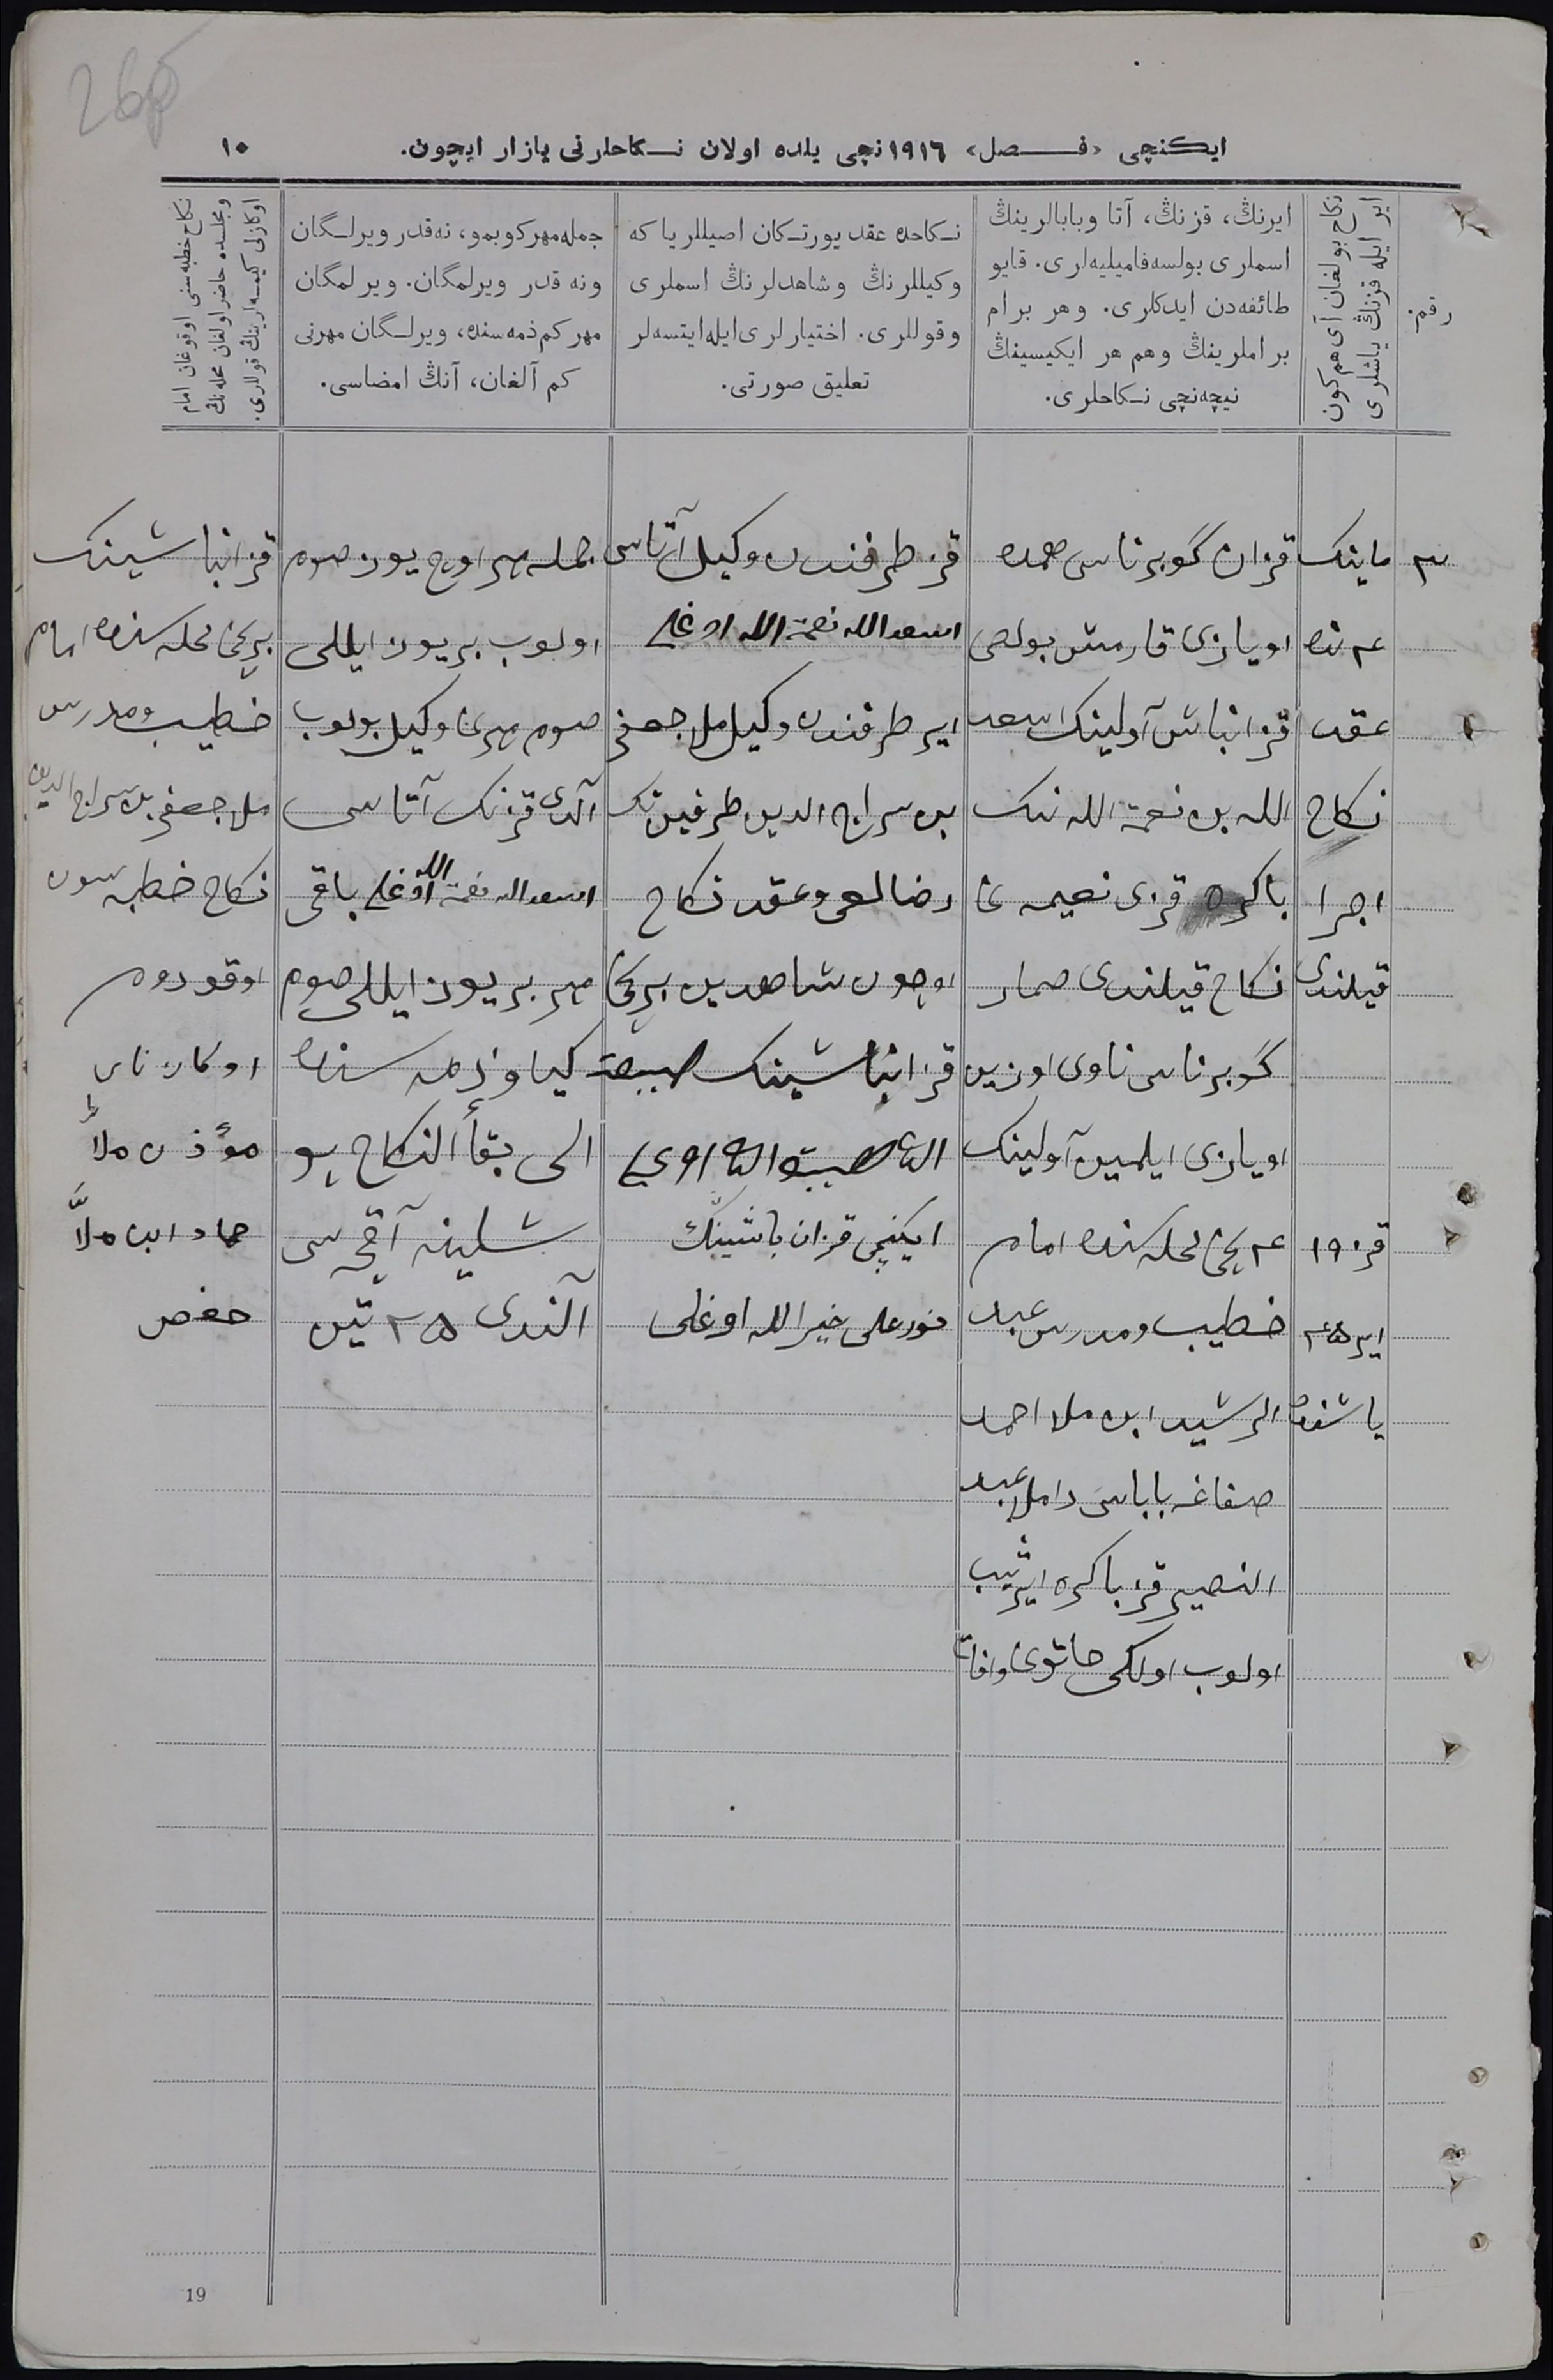 26
ایکنچی «فصل» ١٩١٦نچی یلده اولان نکاحلرنی یازار ایچون.
١٠
رقم.
نکاح بولغان آی هم کون
ایر ایله قزنڭ یاشلری
ایرنڭ، قزنڭ، آتا وبابالرینڭ
اسملری بولسه فامیلیه‌لری. قایو
طائفه‌دن ایدکلری. وهر برام
براملرینڭ وهم هر ایکیسینڭ
نیچه‌نچی نکاحلری.
نکاحده عقد یورتکان اصیللر یا که
وکیللرنڭ وشاهدلرنڭ اسملری
وقوللری. اختیارلری ایله ایتسه‌لر
تعلیق صورتی.
جمله مهر کوبمو، نه‌قدر ویرلگان
ونه قدر ویرلمگان. ویرلمگان
مهر کم ذمه‌سنده، ویرلگان مهرنی
کم آلغان، آنڭ امضاسی.
نکاح خطبه‌سنی اوقوغان امام
ومجلسده حاضر اولغان محله‌نڭ
اوکازلی کیمسه‌لرینڭ قوللری.
٣
ماینک
عقد
نکاح
اجرا
قیلندی
قز ١٩
ایر ٤٥
یاشنده
قزان گوبرناسی
اویازی قارمش بولصی
قزانباش آولینک اسعد
الله بن نعمة الله ننک
باکره قزی نعیمه غه
نکاح قیلندی صمار
گوبرناسی ناوی اوزین
اویازی ایلمین آولینک
محله سنده امام
خطیب ومدرس عبد
الرشید ابن ملا احمد
صفاغه باباسی داملا عبد
النصیر قز باکره ایر ثیب
اولوب اولکی خاتونی وفات
قز طرفندن وکیل آتاسی
اسعد الله نعمة الله اوغلی
ایر طرفندن وکیل ملا جعفر
بن سراج الدین طرفین نک
رضالغی وعقد نکاح
اوچون شاهدین برنچی
قزانباشینک
ایکنچی قزان باشینڭ
نورعلی خیرالله اوغلی
جمله مهر اوچ یوز صوم
اولوب بر یوز ایللی
صوم مهرنی وکیل بولوب
آلدی قزنک آتاسی
اسعد الله نعمة الله اوغلی باقی
مهر بر یوز ایللی صوم
کیاو ذمه سنده
الی بقأ النکاح
شلینه آقچه سی
آلندی ٢٥ تین
قزانباشینک
برنچی محله سنده امام
خطیب ومدرس
ملا جعفر بن سراج الدین
نکاح خطبه سون
اوقودوم
اوکازنای
مؤذن ملا
حماد ابن ملا
حفص
19